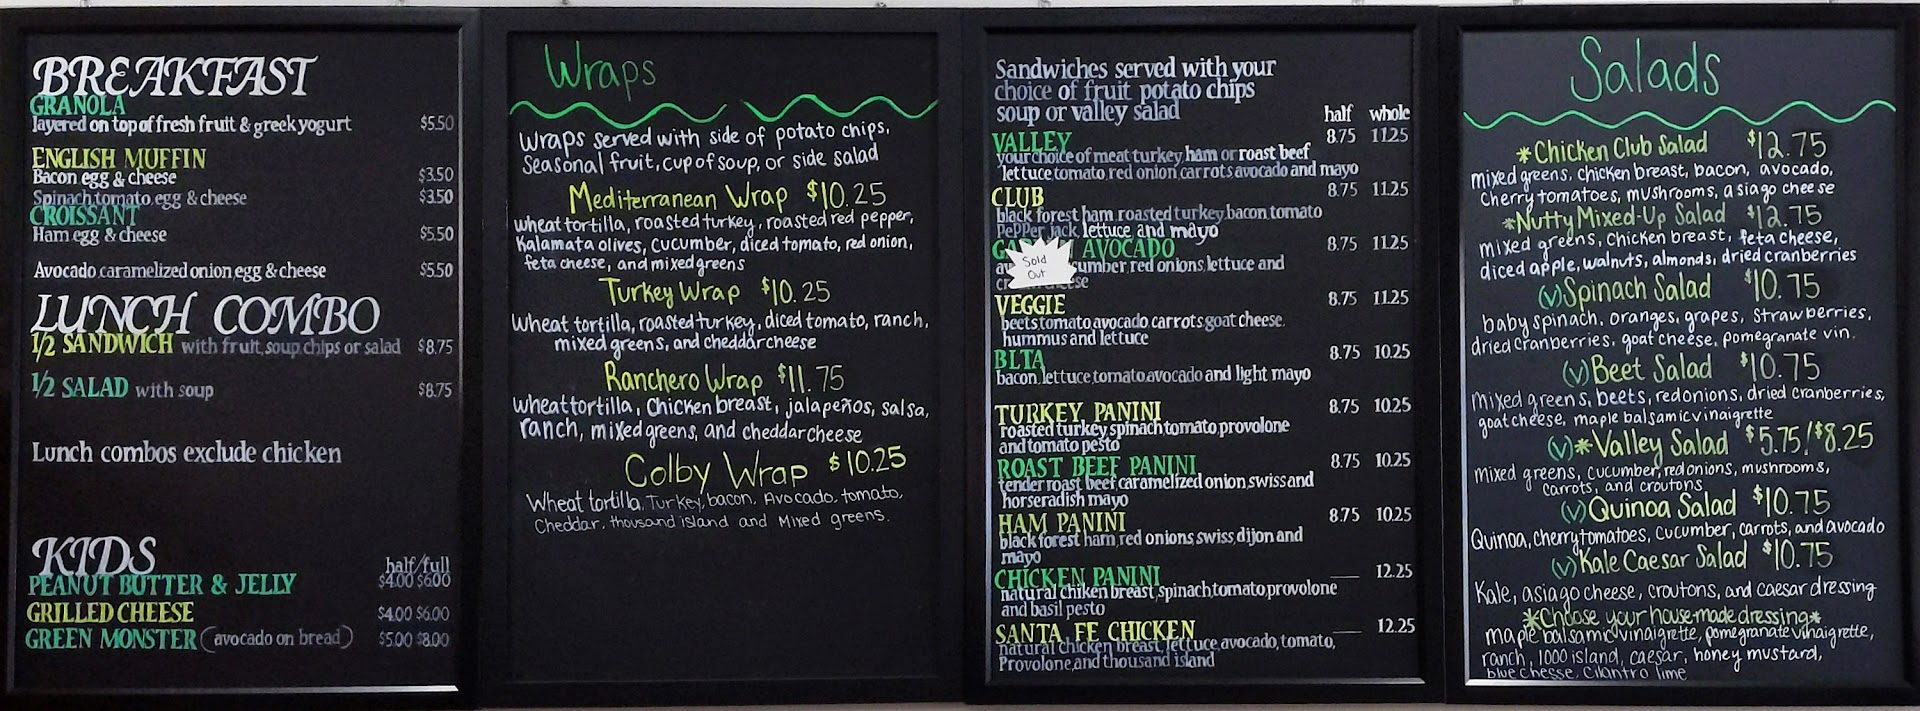 BREAKFAST
GRANOLA
layered on top of fresh fruit & greek yogurt $5.50
ENGLISH MUFFIN
Bacon egg & cheese $3.50
Spinach,tomato,egg & cheese $3.50
CROISSANT
Ham,egg & cheese $5.50
Avocado,caramelized onion,egg & cheese $5.50
LUNCH COMBO
1/2 SANDWICH with fruit,soup,chips or salad $8.75
1/2 SALAD with soup $8.75
Lunch combos exclude chicken
KIDS half/full
PEANUT BUTTER & JELLY $4.00 $6.00
GRILLED CHEESE $4.00 $6.00
GREEN MONSTER (avocado on bread) $5.00 $8.00
Wraps
Wraps served with side of potato chips,
Seasonal fruit, cup of soup, or side salad
Mediterranean Wrap $10.25
wheat tortilla, roasted turkey, roasted red pepper,
Kalamata olives, cucumber, diced tomato, red onion,
feta cheese, and mixed greens
Turkey Wrap $10.25
Wheat tortilla, roasted turkey, diced tomato, ranch,
mixed greens, and cheddar cheese
Ranchero Wrap $11.75
wheat tortilla, chicken breast, jalapeños, salsa,
ranch, mixed greens, and cheddar cheese
Colby Wrap $10.25
Wheat tortilla, Turkey, bacon, Avocado, tomato,
Cheddar, thousand island and Mixed greens.
Sandwiches served with your
choice of fruit potato chips
soup or valley salad half whole
VALLEY 8.75 11.25
your choice of meat turkey, ham or roast beef
lettuce,tomato,red onion,carrots avocado and mayo
CLUB 8.75 11.25
black forest ham,roasted turkey,bacon,tomato
Pepper jack, lettuce, and mayo
AVOCADO 8.75 11.25
Sold
Out
red onions,lettuce and
VEGGIE 8.75 11.25
beets,tomato,avocado,carrots,goat cheese,
hummus and lettuce
BLTA 8.75 10.25
bacon,lettuce,tomato,avocado and light mayo
TURKEY PANINI 8.75 10.25
roasted turkey,spinach,tomato,provolone
and tomato pesto
ROAST BEEF PANINI 8.75 10.25
tender roast beef,caramelized onion,swiss and
horseradish mayo
HAM PANINI 8.75 10.25
black forest ham,red onions,swiss,dijon and
mayo
CHICKEN PANINI 12.25
natural chiken breast,spinach,tomato,provolone
and basil pesto
SANTA FE CHICKEN 12.25
natural chicken breast, lettuce, avocado, tomato,
Provolone,and thousand island
Salads
*Chicken Club Salad $12.75
mixed greens, chicken breast, bacon, avocado,
Cherry tomatoes, mushrooms, asiago cheese
*Nutty Mixed-Up Salad $12.75
mixed greens, chicken breast, feta cheese,
diced apple, walnuts, almonds, dried cranberries
(v)Spinach Salad $10.75
baby spinach, oranges, grapes, strawberries,
dried cranberries, goat cheese, pomegranate vin.
(v)Beet Salad $10.75
Mixed greens, beets, red onions, dried cranberries,
goat cheese, maple balsamic vinaigrette
(v)*Valley Salad $5.75/$8.25
mixed greens, cucumber, red onions, mushrooms,
carrots, and croutons
(v)Quinoa Salad $10.75
Quinoa, cherry tomatoes, cucumber, carrots, and avocado
(v)Kale Caesar Salad $10.75
Kale, asiago cheese, croutons, and caesar dressing
*Choose your house-made dressing*
maple balsamic vinaigrette, pomegranate vinaigrette,
ranch, 1000 island, caesar, honey mustard,
blue cheese, cilantro lime